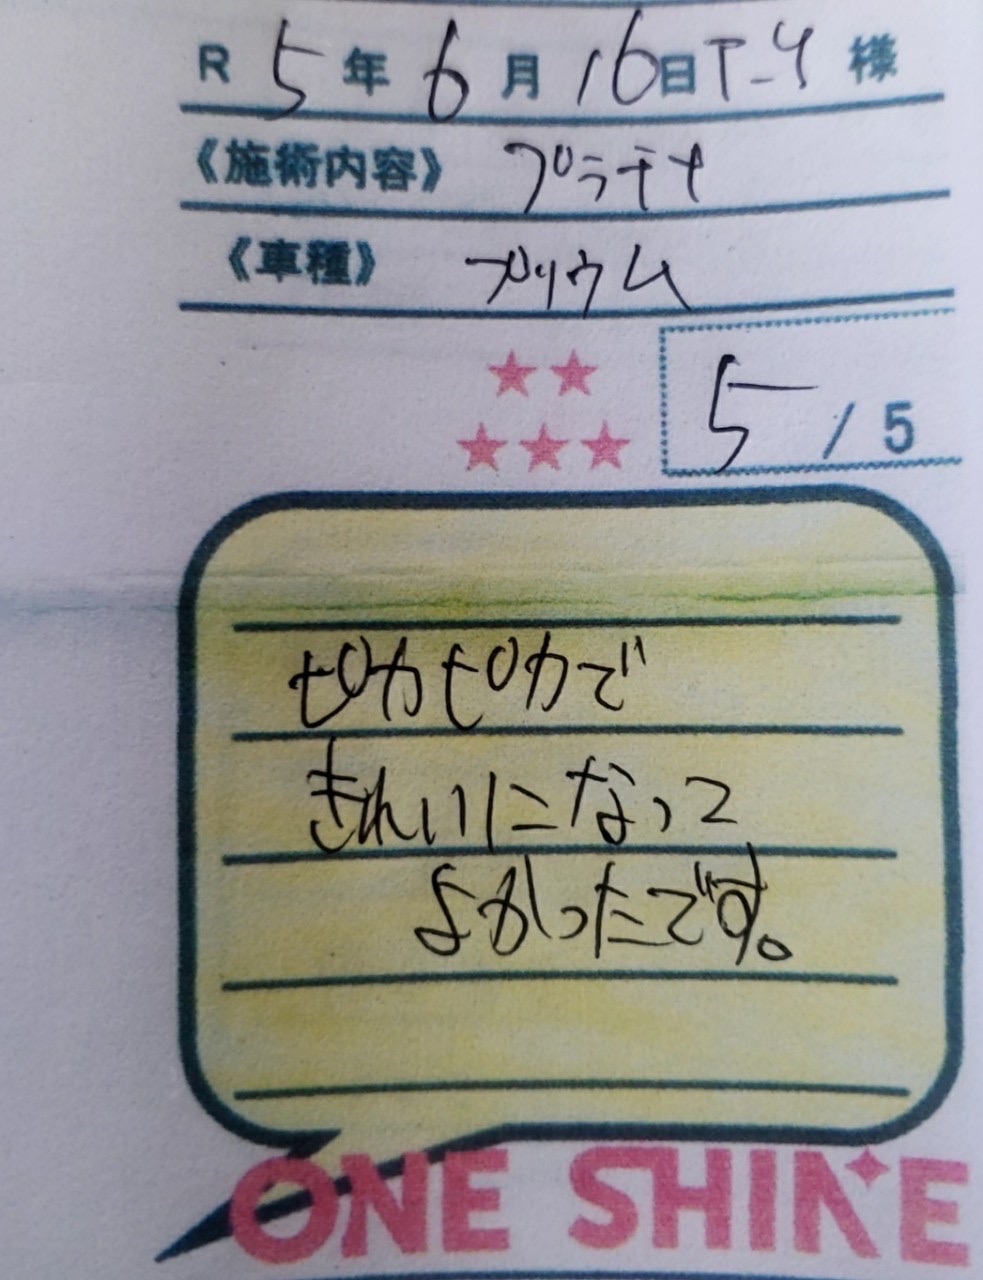 R 5年6月16日 T-Y 様
《施術内容》 プラチナ
《車種》 プリウス
5 / 5
ピカピカで
きれいになって
よかったです。
ONE SHINE